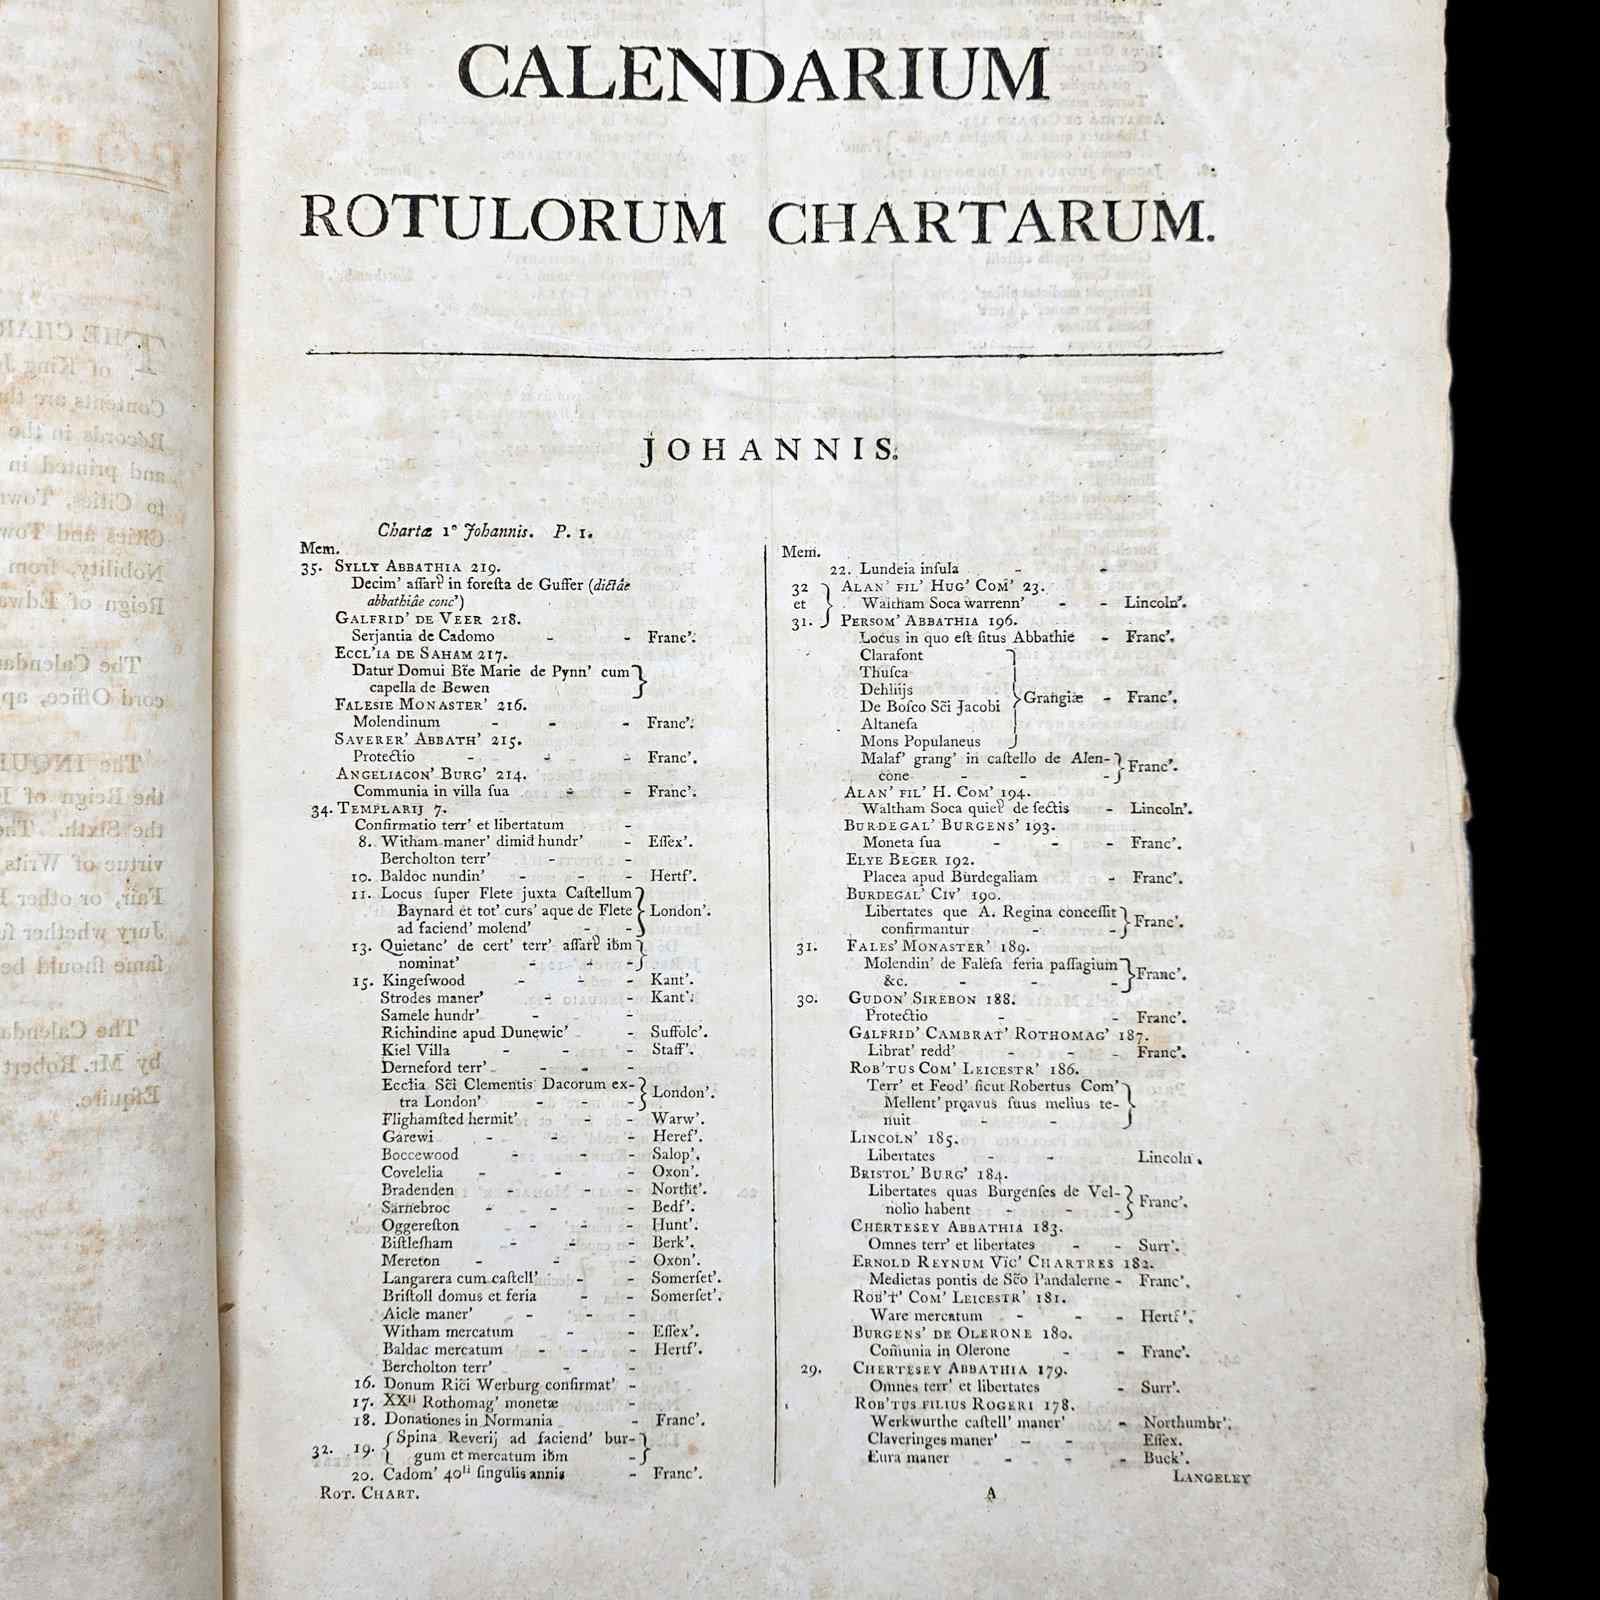 CALENDARIUM
ROTULORUM CHARTARUM.
JOHANNIS.
Chartæ 1º Johannis. P. 1.
Mem.
35. SYLLY ABBATHIA 219.
Decim' aſſart̃ in foreſta de Guffer (dictâe
abbathiâe conc')
GALFRID' DE VEER 218.
Serjantia de Cadomo - - Franc'.
ECCL'IA DE SAHAM 217.
Datur Domui Bt̃e Marie de Pynn' cum
capella de Bewen
FALESIE MONASTER' 216.
Molendinum - - - Franc'.
SAVERER' ABBATH' 215.
Protectio - - - Franc'.
ANGELIACON' BURG' 214.
Communia in villa ſua - - Franc'.
34. TEMPLARIJ 7.
Confirmatio terr' et libertatum -
8. Witham maner' dimid hundr' - Eſſex'.
Bercholton terr' - -
10. Baldoc nundin' - - - Hertf'.
11. Locus ſuper Flete juxta Caſtellum
Baynard et tot' curs' aque de Flete London'.
ad faciend' molend' - -
13. Quietanc' de cert' terr' aſſart̃ ibm
nominat' - - -
15. Kingeſwood - - - Kant'.
Strodes maner' - - Kant'.
Samele hundr' - -
Richindine apud Dunewic' - Suffolc'.
Kiel Villa - - - Staff'.
Derneford terr' - - -
Eccłia Sc̃i Clementis Dacorum ex-
tra London' - - - London'.
Flighamſted hermit' - - Warw'.
Garewi - - - Heref'.
Boccewood - - - Salop'.
Covelelia - - - Oxon'.
Bradenden - - - Northt'.
Sarnebroc - - - Bedf'.
Oggereſton - - - Hunt'.
Biſtleſham - - - Berk'.
Mereton - - - Oxon'.
Langarera cum caſtell' - - Somerſet'.
Briſtoll domus et feria - Somerſet'.
Aicle maner' - - -
Witham mercatum - - Eſſex'.
Baldac mercatum - - - Hertf'.
Bercholton terr' - -
16. Donum Ric̃i Werburg confirmat' -
17. XXli Rothomag' monetæ -
18. Donationes in Normania - Franc'.
32. 19. Spina Reverij ad faciend' bur-
gum et mercatum ibm -
20. Cadom' 40li ſingulis annis - Franc'.
ROT. CHART.
Mem.
22. Lundeia inſula - -
32 ALAN' FIL' HUG' COM' 23.
et Waltham Soca warrenn' - - Lincoln'.
31. PERSOM' ABBATHIA 196.
Locus in quo eſt ſitus Abbathie - Franc'.
Clarafont
Thuſca
Dehlijs
De Boſco Sc̃i Jacobi Grangiæ - Franc'.
Altaneſa
Mons Populaneus
Malaſ' grang' in caſtello de Alen-
cone - - - Franc'.
ALAN' FIL' H. COM' 194.
Waltham Soca quiet̃ de ſectis - Lincoln'.
BURDEGAL' BURGENS' 193.
Moneta ſua - - - Franc'.
ELYE BEGER 192.
Placea apud Burdegaliam - Franc'.
BURDEGAL' CIV' 190.
Libertates que A. Regina conceſſit
confirmantur - - Franc'.
31. FALES' MONASTER' 189.
Molendin' de Faleſa feria paſſagium
&c. - - - Franc'.
30. GUDON' SIREBON 188.
Protectio - - Franc'.
GALFRID' CAMBRAT' ROTHOMAG' 187.
Librat' redd' - - - Franc'.
ROB'TUS COM' LEICESTR' 186.
Terr' et Feod' ſicut Robertus Com'
Mellent' proavus ſuus melius te-
nuit - -
LINCOLN' 185.
Libertates - - Lincoln.
BRISTOL' BURG' 184.
Libertates quas Burgenſes de Vel-
nolio habent - - - Franc'.
CHERTESEY ABBATHIA 183.
Omnes terr' et libertates - - Surr'.
ERNOLD REYNUM VIC' CHARTRES 182.
Medietas pontis de Sc̃o Pandalerne - Franc'.
ROB'T' COM' LEICESTR' 181.
Ware mercatum - - - Hertf'.
BURGENS' DE OLERONE 180.
Com̃unia in Olerone - - Franc'.
29. CHERTESEY ABBATHIA 179.
Omnes terr' et libertates - Surr'.
ROB'TUS FILIUS ROGERI 178.
Werkwurthe caſtell' maner' - Northumbr'.
Claveringes maner' - - Eſſex.
Eura maner - - - Buck'.
LANGELEY
A